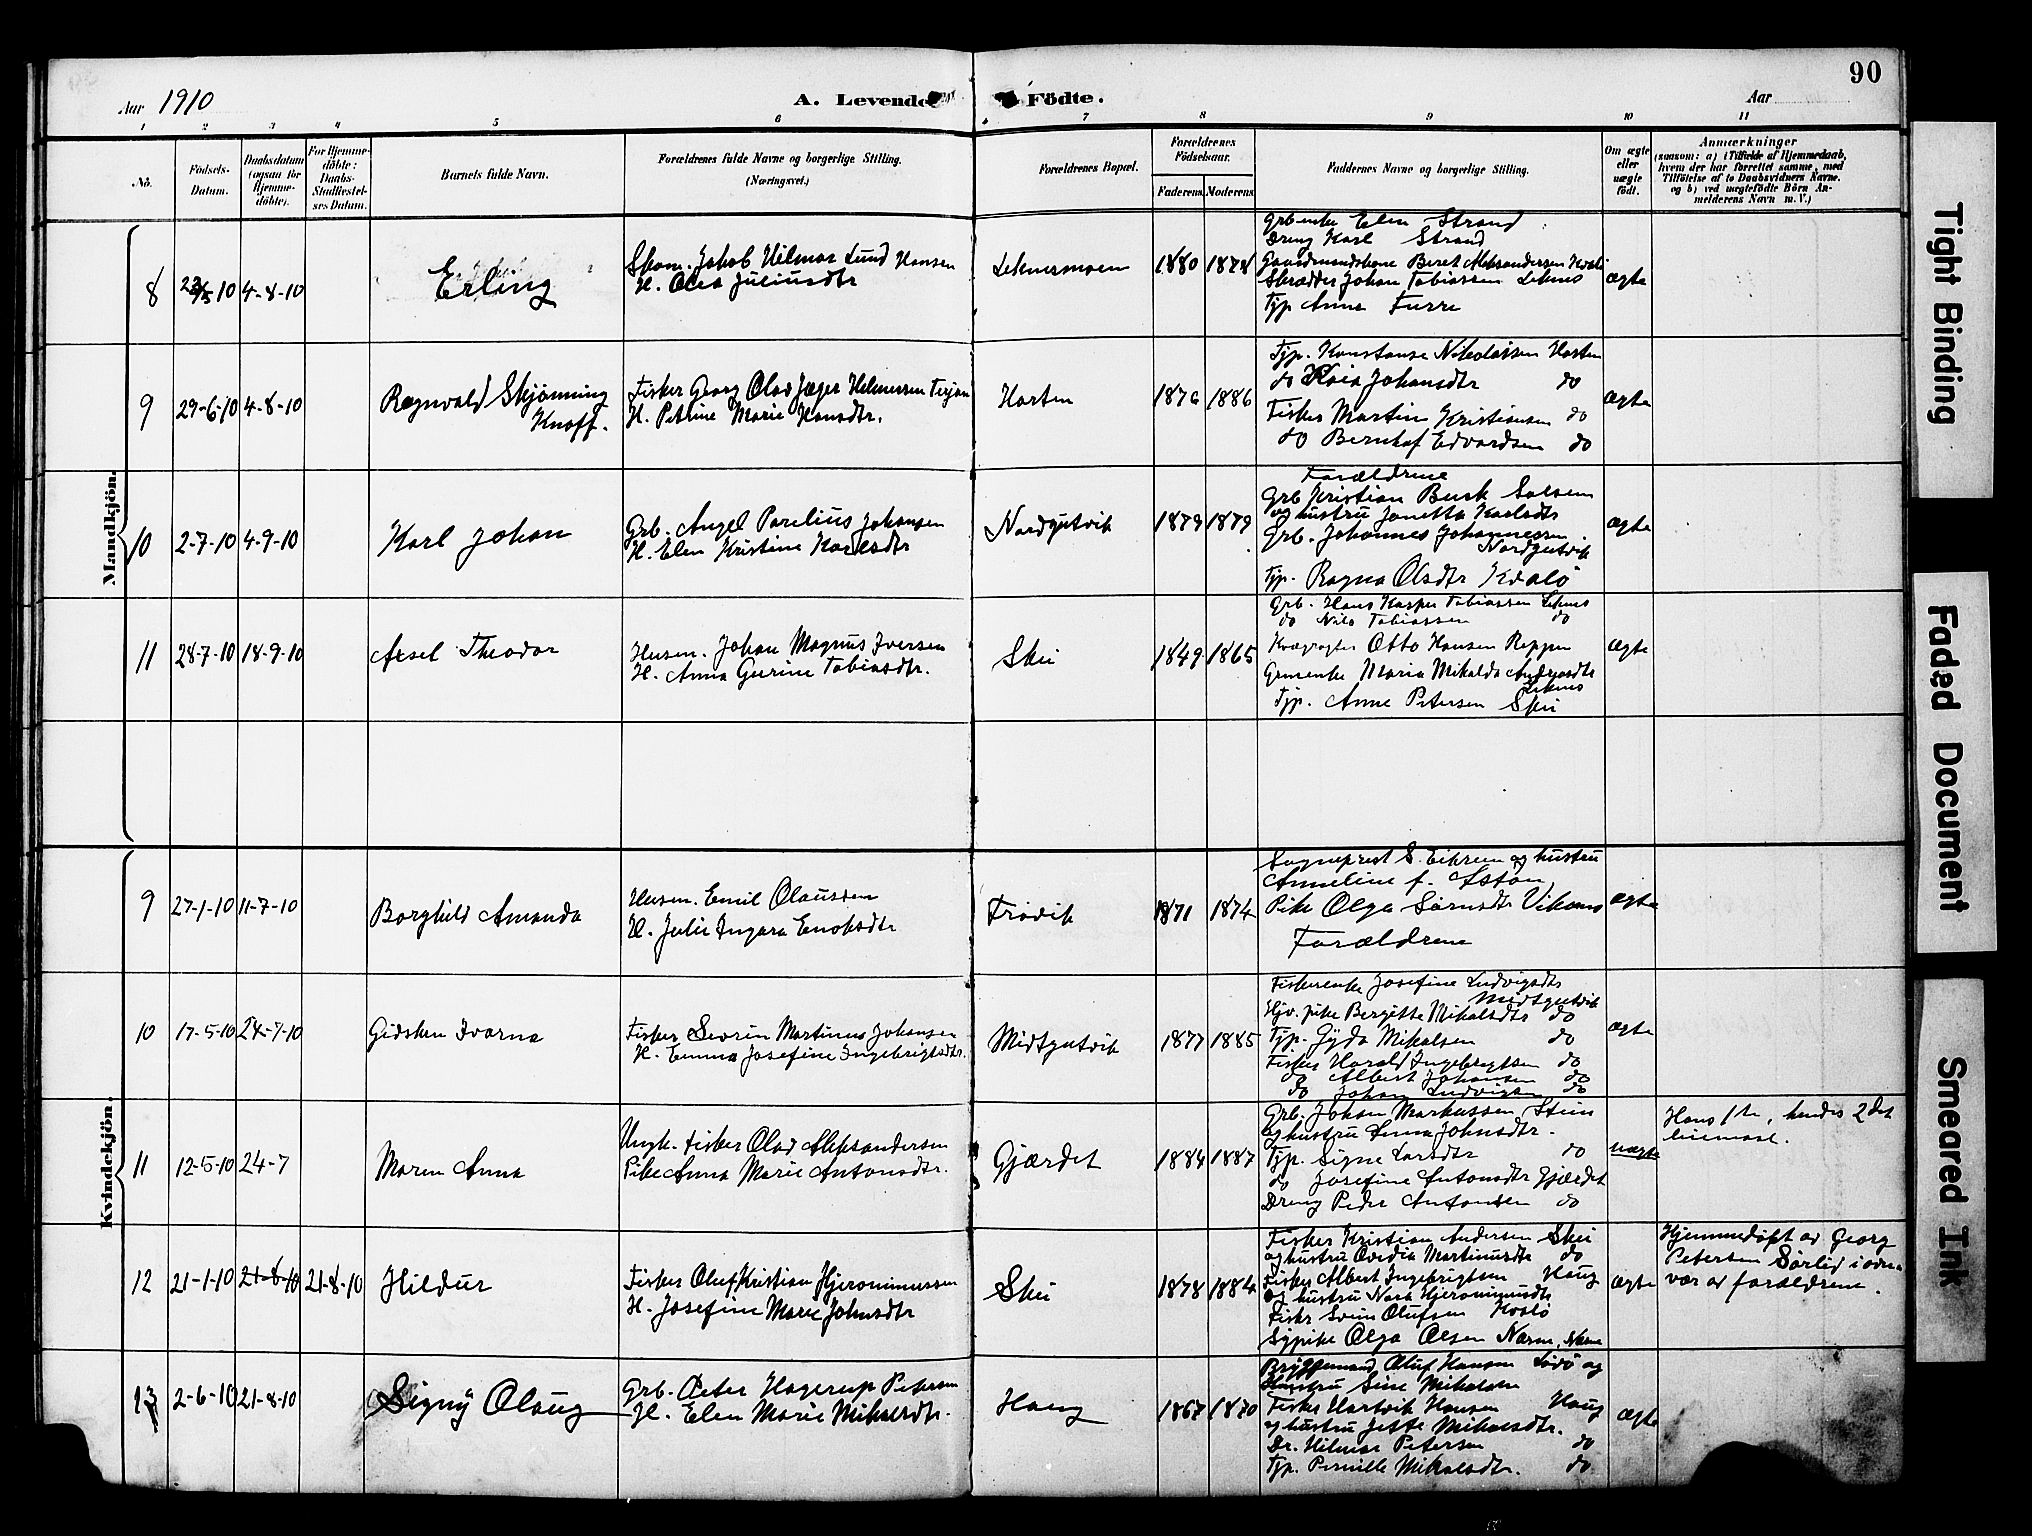 90
Aar 1910
A. Levende Födte.
Aar
1 2 3 4 5 6 6 7 8 9 10 11
No.
Födsels-Datum.
Daabsdatum (ogsaa for Hjemme-döbte).
For Hjemme-döbte: Daabs-Stadfæstel-ses Datum.
Barnets fulde Navn.
Forældrenes fulde Navne og borgerlige Stilling. (Næringsvei.)
Forældrenes Bopæl.
Forældrenes Födselsaar.
Faderens Moderens
Faddernes Navne og borgerlige Stilling.
Om ægte eller uægte födt.
Anmærkninger
(saasom: a) i Tilfælde af Hjemmedaab, hvem der har forrettet samme, med Tilföielse af to Daabsvidners Navne. og b) ved uægtefödte Börn An-melderens Navn m. V.)
Mandkjön.
8 10 4-8-10
Erling
Jakob Hilmar Lund Hansen
H. Olea Juliusdtr
Leknesmoen
1880
Grb enke Elen Strand
Dreng Karl Strand
Gaardmandskone Beret Aleksandersen
Skrædder Johan Tobiassen Leknes
Tjp Anna Furre
ægte
9 29-6-10 4-8-10
Ragnvald Skjönning
Knoff.
Fisker Georg Olad Jæger Helmersen
H. Petrine Marie Hansdtr.
Horten
1876 1886
Tjp. Konstanse Nikolaisen Horten
do Kaia Johansdtr do
Fisker Martin Kristiansen do
do Bernhof Edvardsen do
ægte
10 2-7-10 4-9-10
Karl Johan
Grb. Angel Parelius Johansen
H. Elen Kristine Karlsdtr
Nordgutvik
1879 1879
Forældrene
Grb Kristian Busk Salsen
og hustru Janetta Karlsdtr
Grb. Johannes Johannessen
Nordgutvik
Tjp. Ragna Olsdtr Kvalö
ægte
11 28-7-10 18-9-10
Aksel Theodor
Husm. Johan Magnus Iversen
H. Anna Gurine Tobiasdtr.
Skei
1849 1865
Grb. Hans Kasper Tobiassen Leknes
do Nils Tobiassen do
Otto Hansen Reppen
Maria Mikalda Andreasdtr
Leknes
Tjp. Anne Petersen Skei
ægte
Kvindekjön.
9 27-1-10 11-7-10
Borghild Amanda
Husm. Emil Olaussen
H. Julie Ingara Enoksdtr
Frövik
1871 1874
Sogneprest S. Eikrem og hustru
Anneline f. Aston
Pike Olga Sörnsdtr Vikans
Forældrene
ægte
10 17-5-10 24-7-10
Gidsken Ivarna
Fisker Sevrin Martinus Johansen
H. Emma Josefine Ingebrigtsdtr.
Midtgutvik
1877 1885
Fiskerenke Josefine Ludvigsdtr
Midtgutvik
Hjv. pike Bergitte Mikalsdtr do
Tjp. Gyda Mikalsen do
Fisker Harald Ingebrigtsen do
do Albert Johansen do
do Johan Ludvigsen do
ægte
11 12-5-10 24-7
Maren Anna
Ungk. fisker Olad Aleksandersen
Pike Anna Marie Antonsdtr.
Gjærdet
1884 1887
Grb. Johan Markussen Stein
og hustru Anna Johnsdtr.
Tjp. Signe Larsdtr do
do Josefine Antonsdtr Gjærdet
Dreng Peder Antonsen do
uægte
Hans 1te, hendes 2det
leiemaal.
12 21-1-10 21-8-10 21-8-10
Hildur
Fisker Oluf Kristian Hjeronimussen
H. Josefine Marie Johnsdtr
Skei
1878 1884
Fisker Kristian Andersen Skei
og hustru Ovedia Martinusdtr do
Fisker Albert Ingebrigtsen Haug
og hustru Nora Hjeronimusdtr
Fisker Svein Olufsen
Sypike Olga Olsen Nærnn
ægte
Hjemmedöpt av Georg
Petersen Sörlid i
vær av forældrene.
13 2-6-10 21-8-10
Signy Olaug
Grb. Peter Hagerup Petersen
H. Elen Marie Mikalsdtr.
Haug
1867 1870
Bryggemand Oluf Hansen og
hustru Sine Mikalsen
Fisker Hartvik Hansen Haug
og hustru Jette Mikalsdtr.
Dr. Hilmar Petersen do
Tjp. Pernille Mikalsdtr. do
ægte
Tight Binding
Faded Document
Smeared Ink